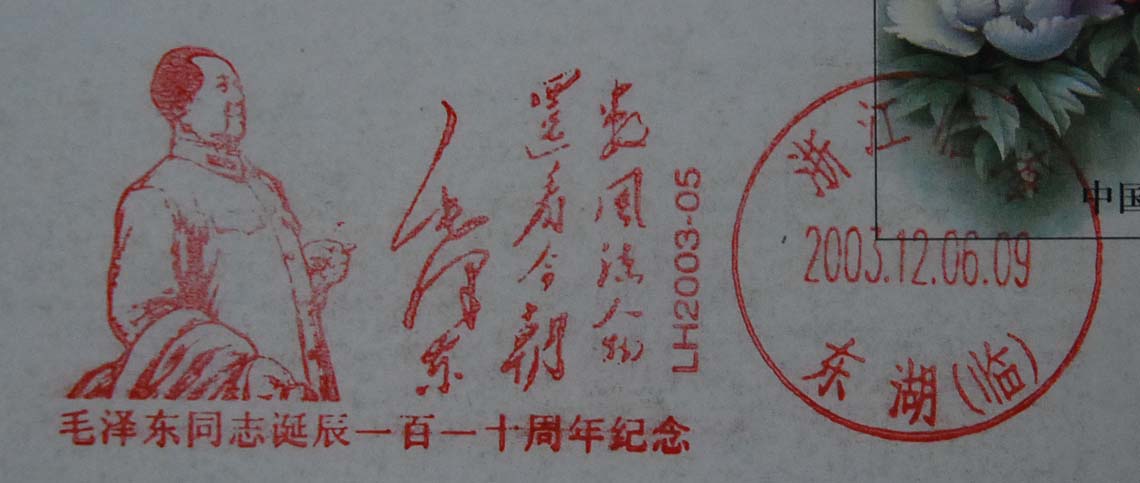 数风流人物
還看今朝
毛泽东
LH2003-05
毛泽东同志诞辰一百一十周年纪念
浙江
2003.12.06.09
东湖(临)
中国